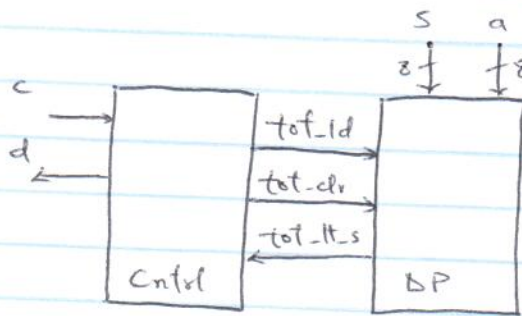 S a
8 8
c
tot_ld
d
tot_clr
tot_lt_s
Cntrl DP